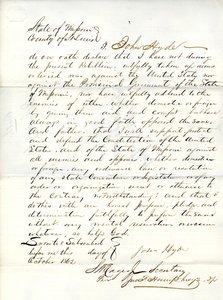 State of Missouri
County of
I, John Hyde
do on oath declare that I have not during
the present Rebellion, wilfully taken up arms
or levied war against the United States nor
against the Provisional Government of the State
of Missouri, nor have wilfully adhered to the
enemies of either whether domestic or foreign
by giving them aid and comfort but have
always in good faith opposed the same
And further that I will support protect
and defend the Constitution of the United
States and of the State of Missouri against
all enemies and opposers whether domestic
or foreign any ordinance law or resolution
of any state Convention or Legislature or of any
order or organization secret or otherwise to
the Contrary notwithstanding; and that I
do this with an honest purpose pledge and
determination faithfully to perform the same
without any mental reservation or evasion
whatever so help me God
Sworn to & Subscribed
before me this day of
October 186
John Hyde